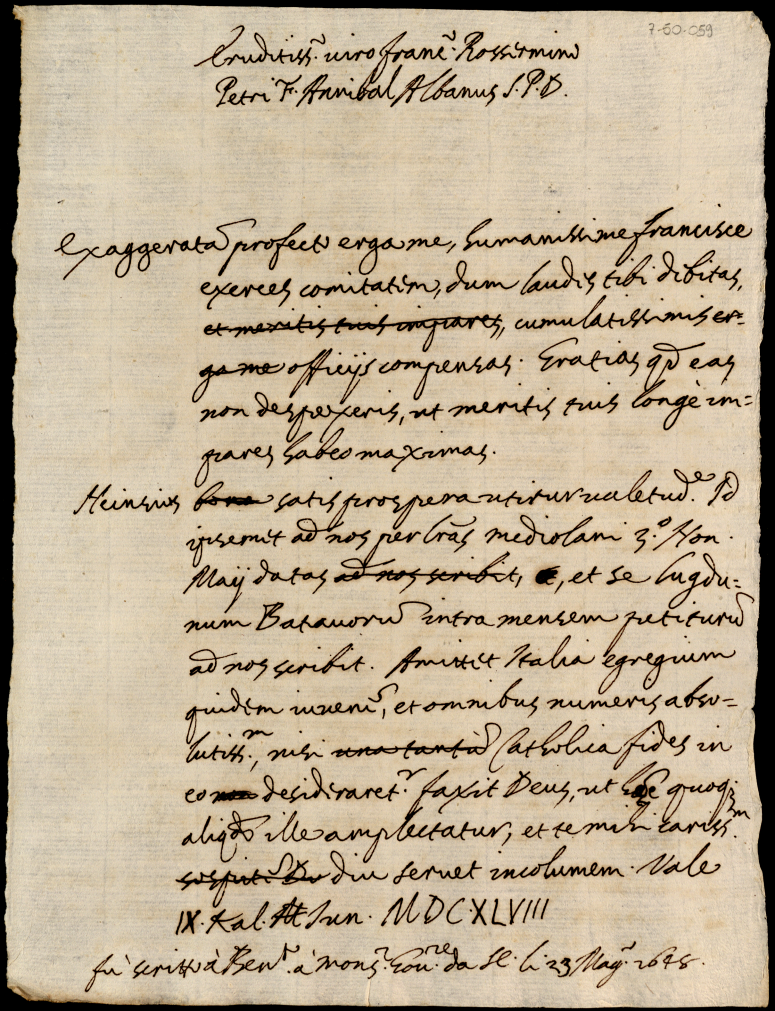 7-60-059
Eruditiss. viro Franc. Rossermino
Petri F. Annibal Albanus S. P. D.
Exaggeratā profecto erga me, humanissime Francisce
exerces comitatem, dum laudes tibi debitas,
et meritis tuis impares, cumulatissimis er-
ga me officijs compensas. Gratias qd eas
non despexeris, ut meritis tuis longè im=
pares habeo maximas.
Heinsius bona satis prospera utitur valetude. Id
ipsemit ad nos per lrās Mediolani 3.º Non.
Maij datas ad nos scribit, et se Lugdu=
num Batavorū intra mensem petiturū
ad nos scribit. Amittet Italia egregium
quidem iuvenē, et omnibus numeris abso=
lutiss.m, nisi una tantū Catholica fides in
eo desideraretr. Faxit Deus, ut quoq;
aliqdo ille amplectatur, et te mihi cariss.m
diu servet incolumem. Vale
IX. Kal. Jun. MDCXLVIII
fù scritto à mons. da Sē. li 23 Mag. 1648.